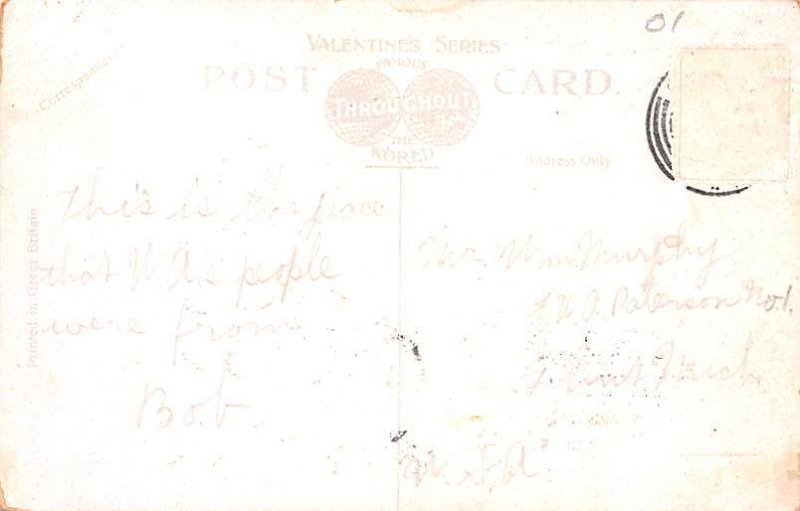 01
VALENTINE'S SERIES
FAMOUS
POST CARD.
THROUGHOUT
THE
WORLD
Correspondence
Address Only
Printed in Great Britain
This is the place
that W A's people
were from
Bob
Mr. Wm Murphy
Paterson No1.
Flint Mich
U S A